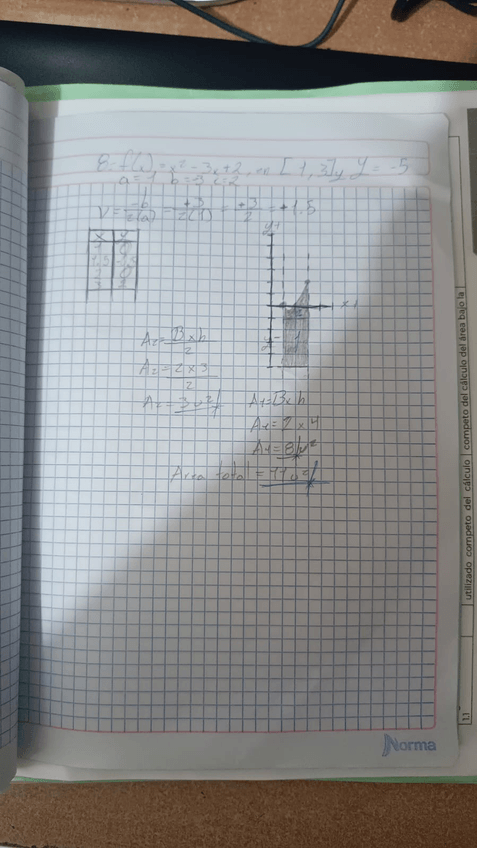 8- f(x) = x² - 3x + 2, en [1, 3] y Y = -5
a = 1 b = 3 c = 2
V = -b / 2(a) = +3 / 2(1) = +3 / 2 = +1.5
x y
1 0
2 0
3 2
y+
x+
A2 = B x h / 2
A2 = 2 x 3 / 2
A2 = 3u²
A1 = B x h
A1 = 2 x 4
A1 = 8u²
Area total = 11u²
Norma
utilizado competo del cálculo competo del cálculo del área bajo la
11